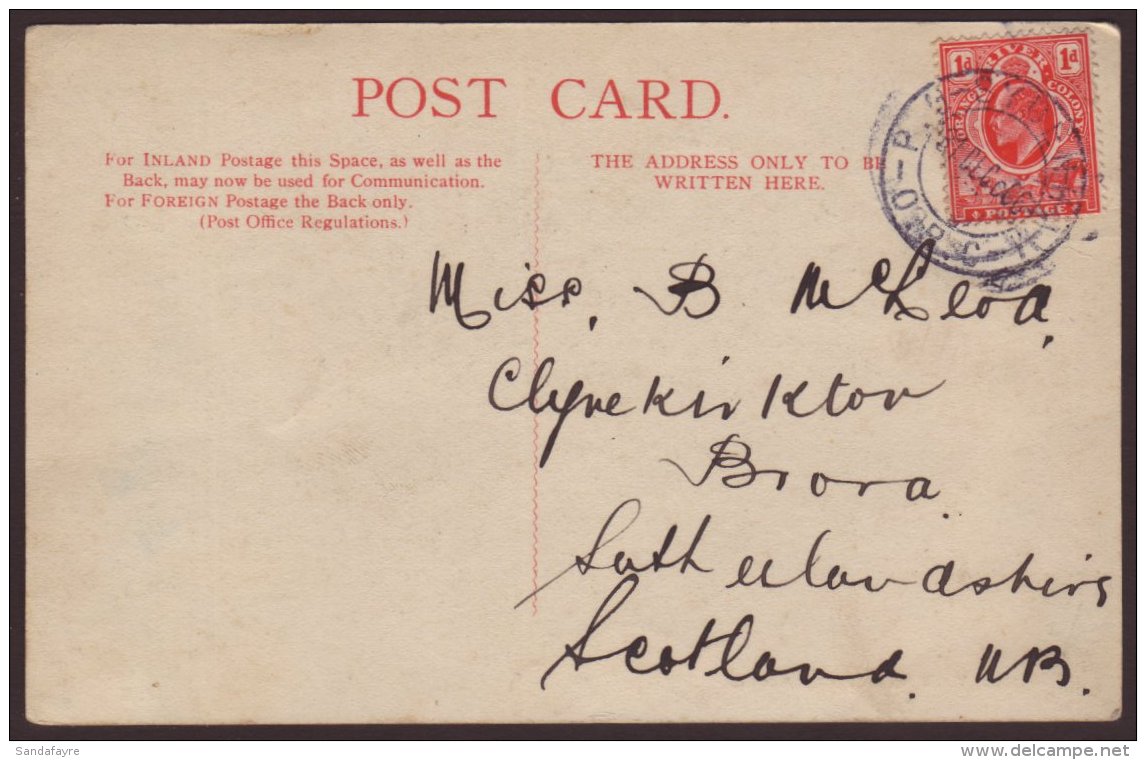 POST CARD.
For INLAND Postage this Space, as well as the
Back, may now be used for Communication.
For FOREIGN Postage the Back only.
(Post Office Regulations.)
THE ADDRESS ONLY TO BE
WRITTEN HERE.
1d 1d
ORANGE RIVER COLONY
POSTAGE
Miss, B McLeod,
Clynekirkton
Brora
Sutherlandshire
Scotland. NB.
Sandafayre
www.delcampe.net